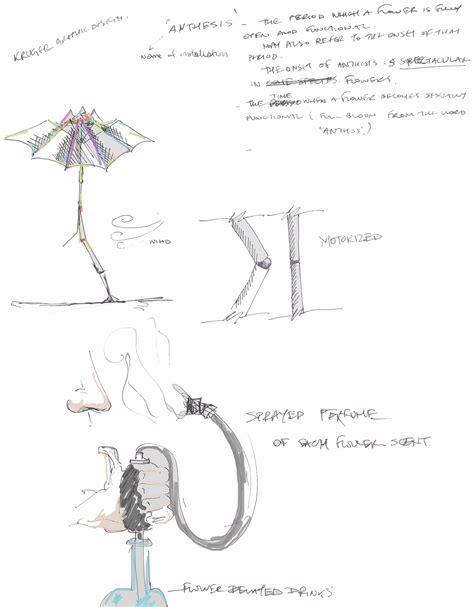 KRUGER GRAPHIC DESIGN.
"ANTHESIS"
Name of installation
- THE PERIOD WHICH A FLOWER IS FULLY
OPEN AND FUNCTIONAL.
MAY ALSO REFER TO THE ONSET OF THAT
PERIOD.
THE ONSET OF ANTHESIS IS SPECTACULAR
IN SOME SPECIES. FLOWERS.
- THE TIME WHEN A FLOWER BECOMES SEXUALLY
FUNCTIONAL (FULL BLOOM FROM THE WORD
'ANTHOS')
WIND
MOTORIZED
SPRAYED PERFUME
OF EACH FLOWER SCENT
FLOWER RELATED DRINKS